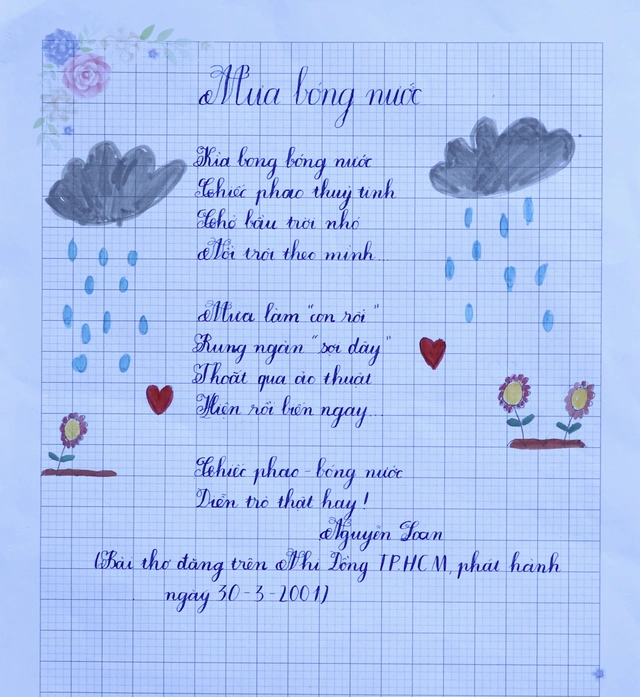 Mưa bóng nước
Kìa bong bóng nước
Chiếc phao thuỷ tinh
Chở bầu trời nhỏ
Nổi trôi theo mình...
Mưa làm "con rối"
Rung ngàn "sợi dây"
Thoắt qua ảo thuật
Hiện rồi biến ngay...
Chiếc phao - bóng nước
Diễn trò thật hay!
Nguyễn Loan
(Bài thơ đăng trên Nhi Đồng TP.HCM, phát hành
ngày 30-3-2001)